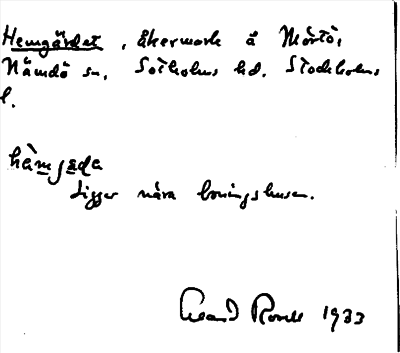 Hemgärdet, åkermark å Mörtö,
Nämdö sn, Sotholms hd. Stockholms
l.
hàmjeda
Ligger nära boningshusen.
1933